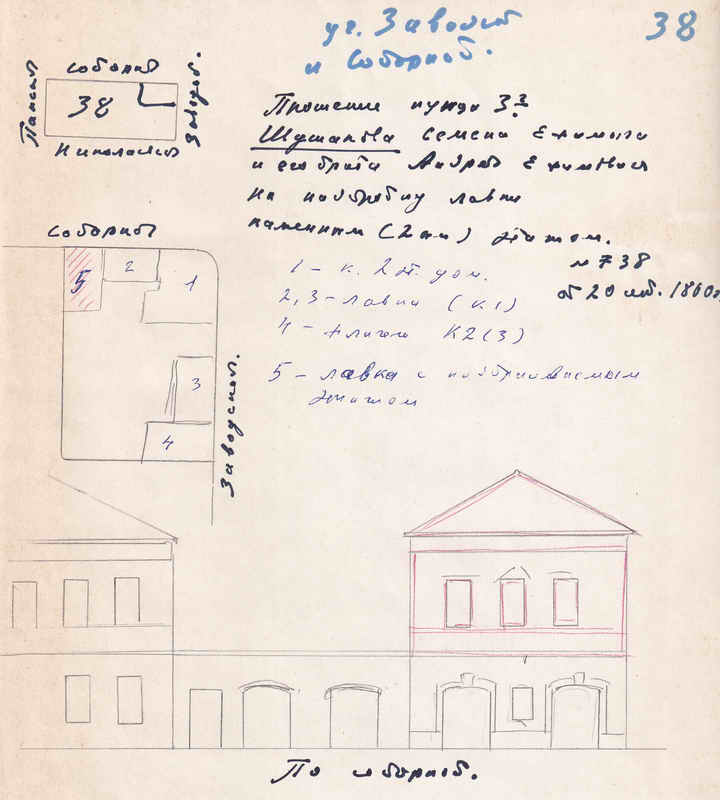 уг. Заводск
и Соборной.
38
Соборная
Панская
38
Заводск.
Николаевская
Прошение купца 3 г.
Шушанова Семена Екимыча
и его брата Андрея Екимовича
на надстройку лавки
каменным (2ым) этажом.
№ 738
от 20 1860г.
Соборной
5
2
1
3
4
Заводской.
1 – к. 2эт. дом.
2, 3 – лавки (к. 1)
4 – флигель К2(3)
5 – лавка с надстраиваемым
этажом
По Соборной.